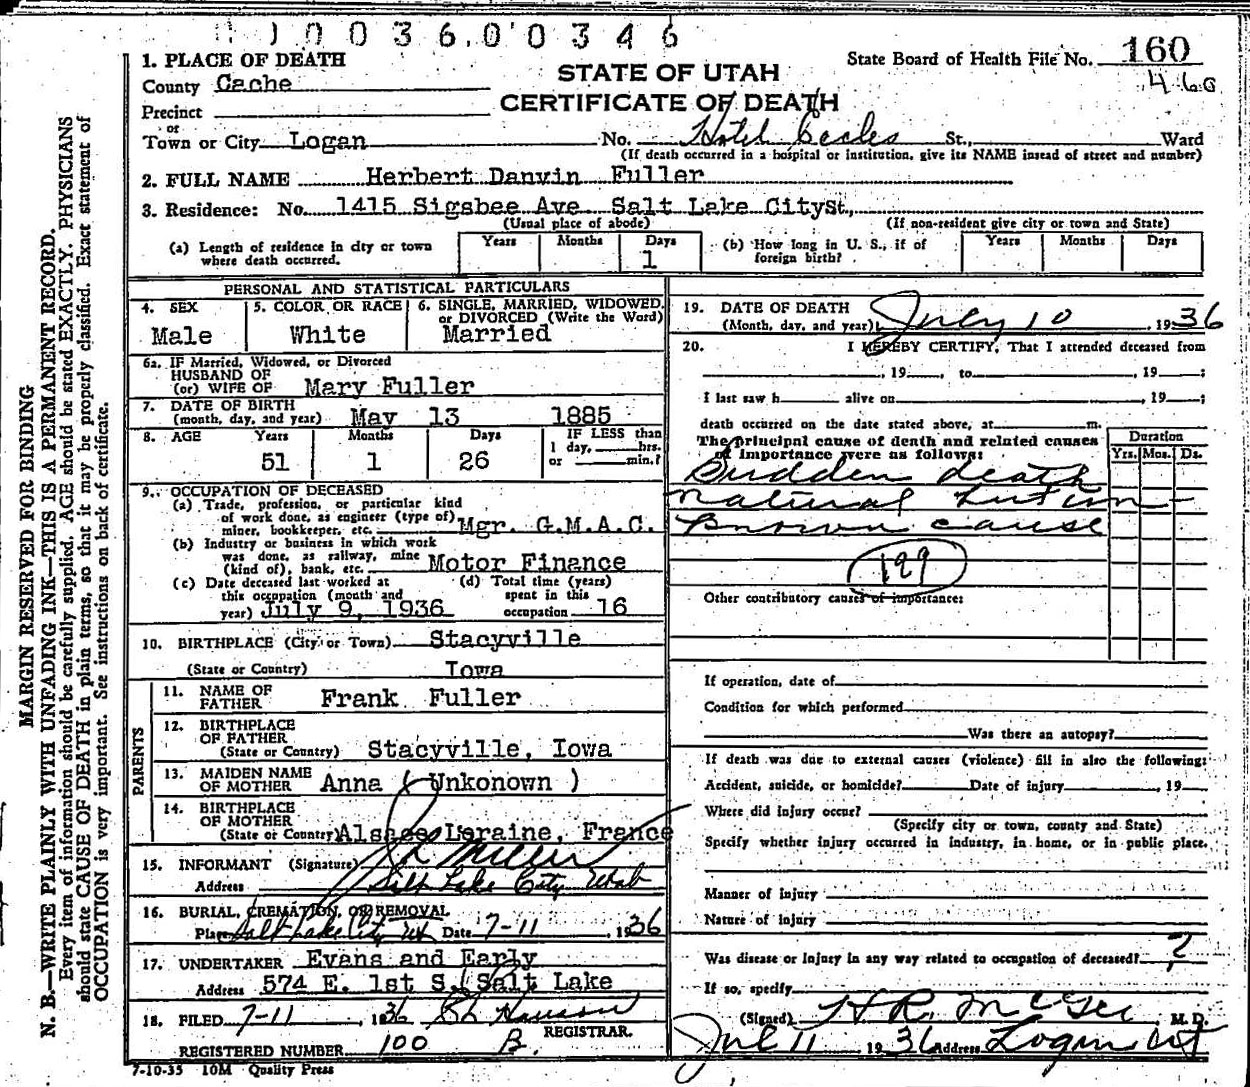 1 0 0 3 6 0 0 3 4 6
1. PLACE OF DEATH
State Board of Health File No. 160
County Cache
STATE OF UTAH
460
CERTIFICATE OF DEATH
Precinct
or
Town or City Logan No. Hotel Eccles St., Ward
(If death occurred in a hospital or institution, give its NAME instead of street and number)
2. FULL NAME Herbert Danvin Fuller
3. Residence: No. 1415 Sigsbee Ave. Salt Lake City St.,
(Usual place of abode) (If non-resident give city or town and State)
(a) Length of residence in city or town where death occurred. Years Months Days 1
(b) How long in U. S., if of foreign birth? Years Months Days
PERSONAL AND STATISTICAL PARTICULARS
4. SEX Male
5. COLOR OR RACE White
6. SINGLE, MARRIED, WIDOWED, or DIVORCED (Write the Word) Married
6a. IF Married, Widowed, or Divorced
HUSBAND OF
(or) WIFE OF Mary Fuller
7. DATE OF BIRTH
(month, day, and year) May 13 1885
8. AGE Years Months Days IF LESS than
1 day, hrs.
51 1 26 or min.?
9. OCCUPATION OF DECEASED
(a) Trade, profession, or particular kind
of work done, as engineer (type of)
miner, bookkeeper, etc. Mgr. G.M.A.C.
(b) Industry or business in which work
was done, as railway, mine
(kind of), bank, etc. Motor Finance
(c) Date deceased last worked at
this occupation (month and
year) July 9, 1936
(d) Total time (years)
spent in this
occupation 16
10. BIRTHPLACE (City or Town) Stacyville
(State or Country) Iowa
PARENTS
11. NAME OF
FATHER Frank Fuller
12. BIRTHPLACE
OF FATHER
(State or Country) Stacyville, Iowa
13. MAIDEN NAME
OF MOTHER Anna ( Unkonown )
14. BIRTHPLACE
OF MOTHER
(State or Country) Alsace Loraine, France
15. INFORMANT (Signature) Miller
Address Salt Lake City Utah
16. BURIAL, CREMATION, OR REMOVAL
Place Salt Lake City Ut Date 7-11 1936
17. UNDERTAKER Evans and Early
Address 574 E. 1st S. Salt Lake
18. FILED 7-11, 1936
REGISTRAR.
REGISTERED NUMBER 100 B.
7-10-35 10M Quality Press
19. DATE OF DEATH
(Month, day, and year) July 10, 1936
20. I HEREBY CERTIFY, That I attended deceased from
, 19 , to , 19 ;
I last saw h alive on , 19 ;
death occurred on the date stated above, at m.
The principal cause of death and related causes
of importance were as follows:
Duration
Yrs. Mos. Ds.
Sudden death
natural but un-
known cause
199
Other contributory causes of importance:
If operation, date of
Condition for which performed
Was there an autopsy?
If death was due to external causes (violence) fill in also the following:
Accident, suicide, or homicide? Date of injury , 19
Where did injury occur?
(Specify city or town, county and State)
Specify whether injury occurred in industry, in home, or in public place.
Manner of injury
Nature of injury
Was disease or injury in any way related to occupation of deceased? ?
If so, specify
(Signed) H R McGee, M. D.
Jul 11, 1936 Address Logan Ut
MARGIN RESERVED FOR BINDING
N. B.—WRITE PLAINLY WITH UNFADING INK—THIS IS A PERMANENT RECORD.
Every item of information should be carefully supplied. AGE should be stated EXACTLY. PHYSICIANS
should state CAUSE OF DEATH in plain terms, so that it may be properly classified. Exact statement of
OCCUPATION is very important. See instructions on back of certificate.